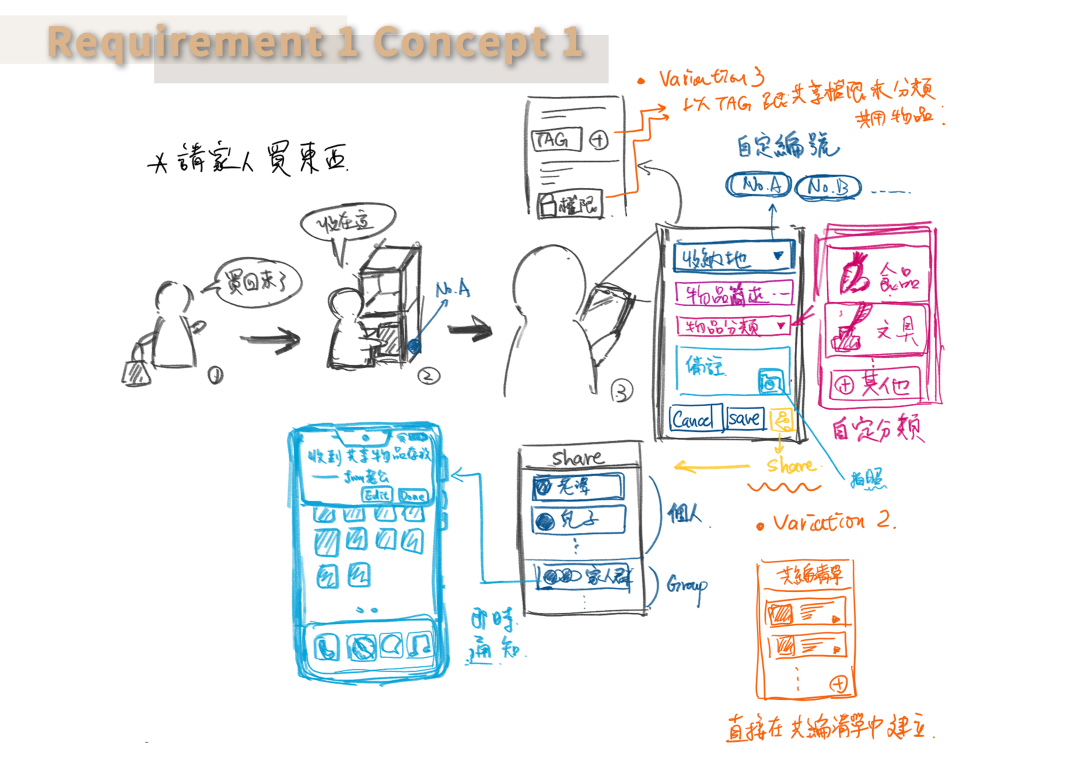 Requirement 1 Concept 1
* 請家人買東西.
買回來了
①
收在這
No.A
②
③
• Variation 3
以 TAG 跟共享權限來分類
共用物品.
TAG ⊕
權限.
自定編號
No.A No.B -----
收納地 ▼
物品簡述 ...
物品分類 ▼
備註
Cancel save
share
拍照
食品
文具
⊕ 其他
自定分類
share
老婆
兒子
個人.
家人群
Group
收到共享物品存放
—— from 老公
Edit Done
即時
通知.
• Variation 2.
共編清單
⊕
直接在共編清單中建立.